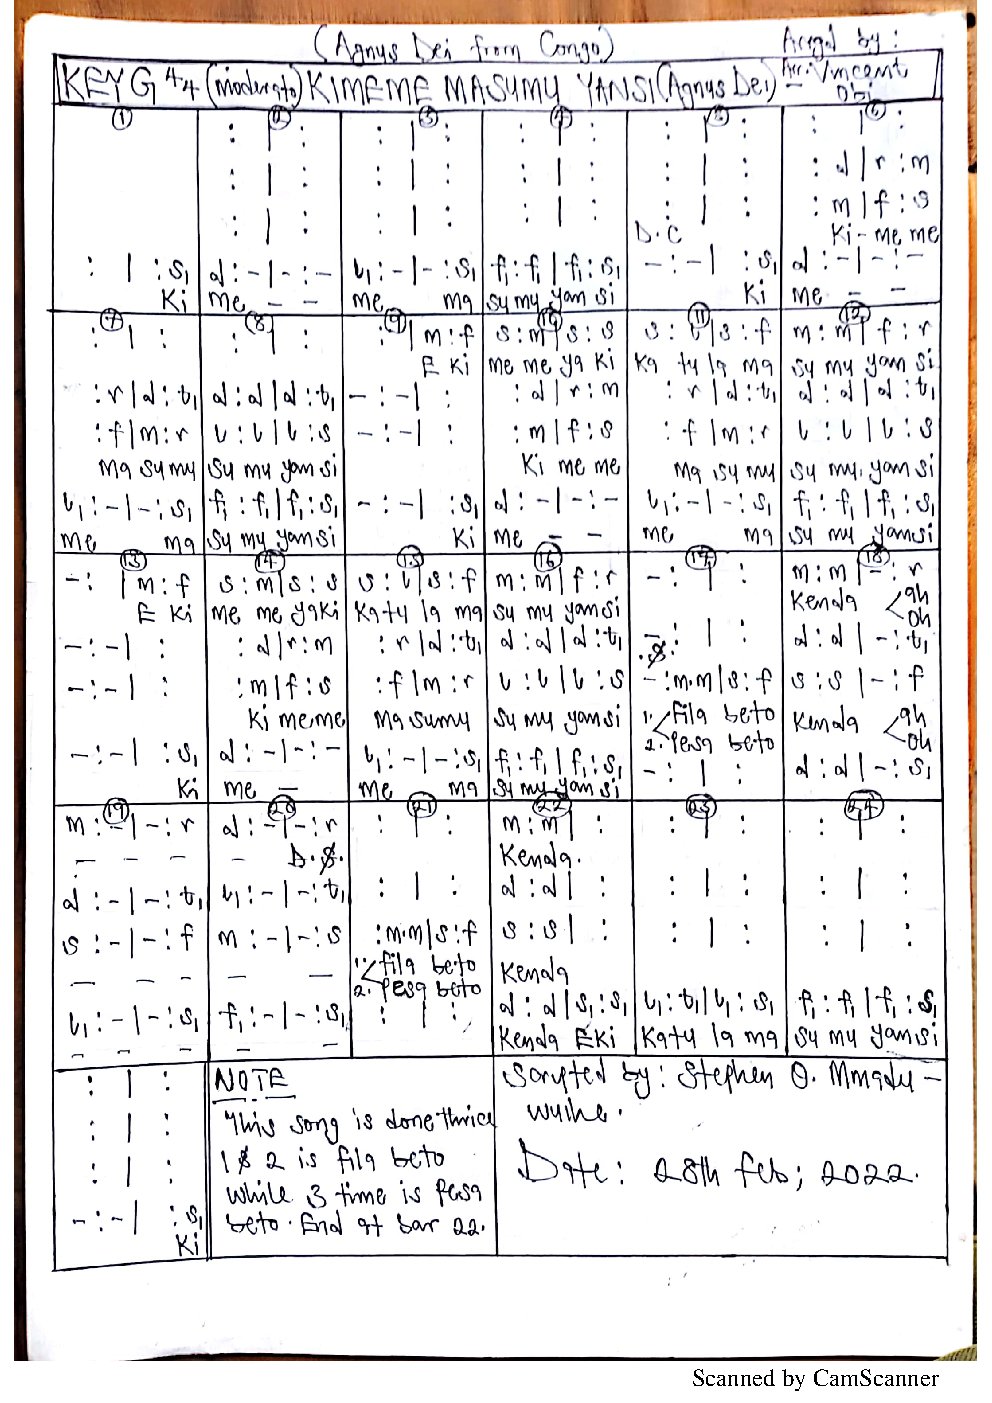 (Agnus Dei from Congo)
Arrgd by:
KEY G 4/4 (moderato) KIMEME MASUMU YANSI (Agnus Dei) Arr: Vincent Obi
1 2 3 4 5 6
: | : : | : : | : : | : : | :
: | : : | : : | : : | : : d | r : m
: | : : | : : | : : | : : m | f : s
D.C Ki - me me
: | : s₁ d : - | - : - l₁ : - | - : s₁ f₁ : f₁ | f₁ : s₁ - : - | : s₁ d : - | - : -
Ki Me - - me ma su mu yan si Ki me - -
7 8 9 10 11 12
: | : : | : : | m : f s : m | s : s s : l | s : f m : m | f : r
E Ki me me ya ki Ka tu la ma su mu yan si
: r | d : t₁ d : d | d : t₁ - : - | : : d | r : m : r | d : t₁ d : d | d : t₁
: f | m : r l : l | l : s - : - | : : m | f : s : f | m : r l : l | l : s
ma su mu su mu yan si Ki me me ma su mu su mu yan si
l₁ : - | - : s₁ f₁ : f₁ | f₁ : s₁ - : - | : s₁ d : - | - : - l₁ : - | - : s₁ f₁ : f₁ | f₁ : s₁
me ma su mu yan si Ki me - - me ma su mu yansi
13 14 15 16 17 18
- : | m : f s : m | s : s s : l | s : f m : m | f : r - : | : m : m | - : r
E Ki me me ya ki Ka tu la ma su mu yan si Kenda ah oh
- : - | : : d | r : m : r | d : t₁ d : d | d : t₁ - : | : d : d | - : t₁
.S.
- : - | : : m | f : s : f | m : r l : l | l : s - : m.m | s : f s : s | - : f
Ki me me ma su mu su mu yan si 1. fila beto 2. Pesa beto Kenda ah oh
- : - | : s₁ d : - | - : - l₁ : - | - : s₁ f₁ : f₁ | f₁ : s₁ - : | : d : d | - : s₁
Ki me - me ma su mu yan si
19 20 21 22 23 24
m : - | - : r d : - | - : r : | : m : m | : : | : : | :
- - - - D.S. Kenda.
d : - | - : t₁ l₁ : - | - : t₁ : | : d : d | : : | : : | :
s : - | - : f m : - | - : s : m.m | s : f s : s | : : | : : | :
- - - - - 1. fila beto 2. Pesa beto Kenda
l₁ : - | - : s₁ f₁ : - | - : s₁ : | : d : d | s₁ : s₁ l₁ : t₁ | l₁ : s₁ f₁ : f₁ | f₁ : s₁
- - - - - Kenda E Ki Katu la ma su mu yan si
: | :
: | :
: | :
- : - | : s₁
Ki
NOTE
This song is done thrice
1 & 2 is fila beto
while 3 time is Pesa
beto. End at bar 22.
Scripted by: Stephen O. Mmadu -
wuihe.
Date: 28th Feb; 2022.
Scanned by CamScanner